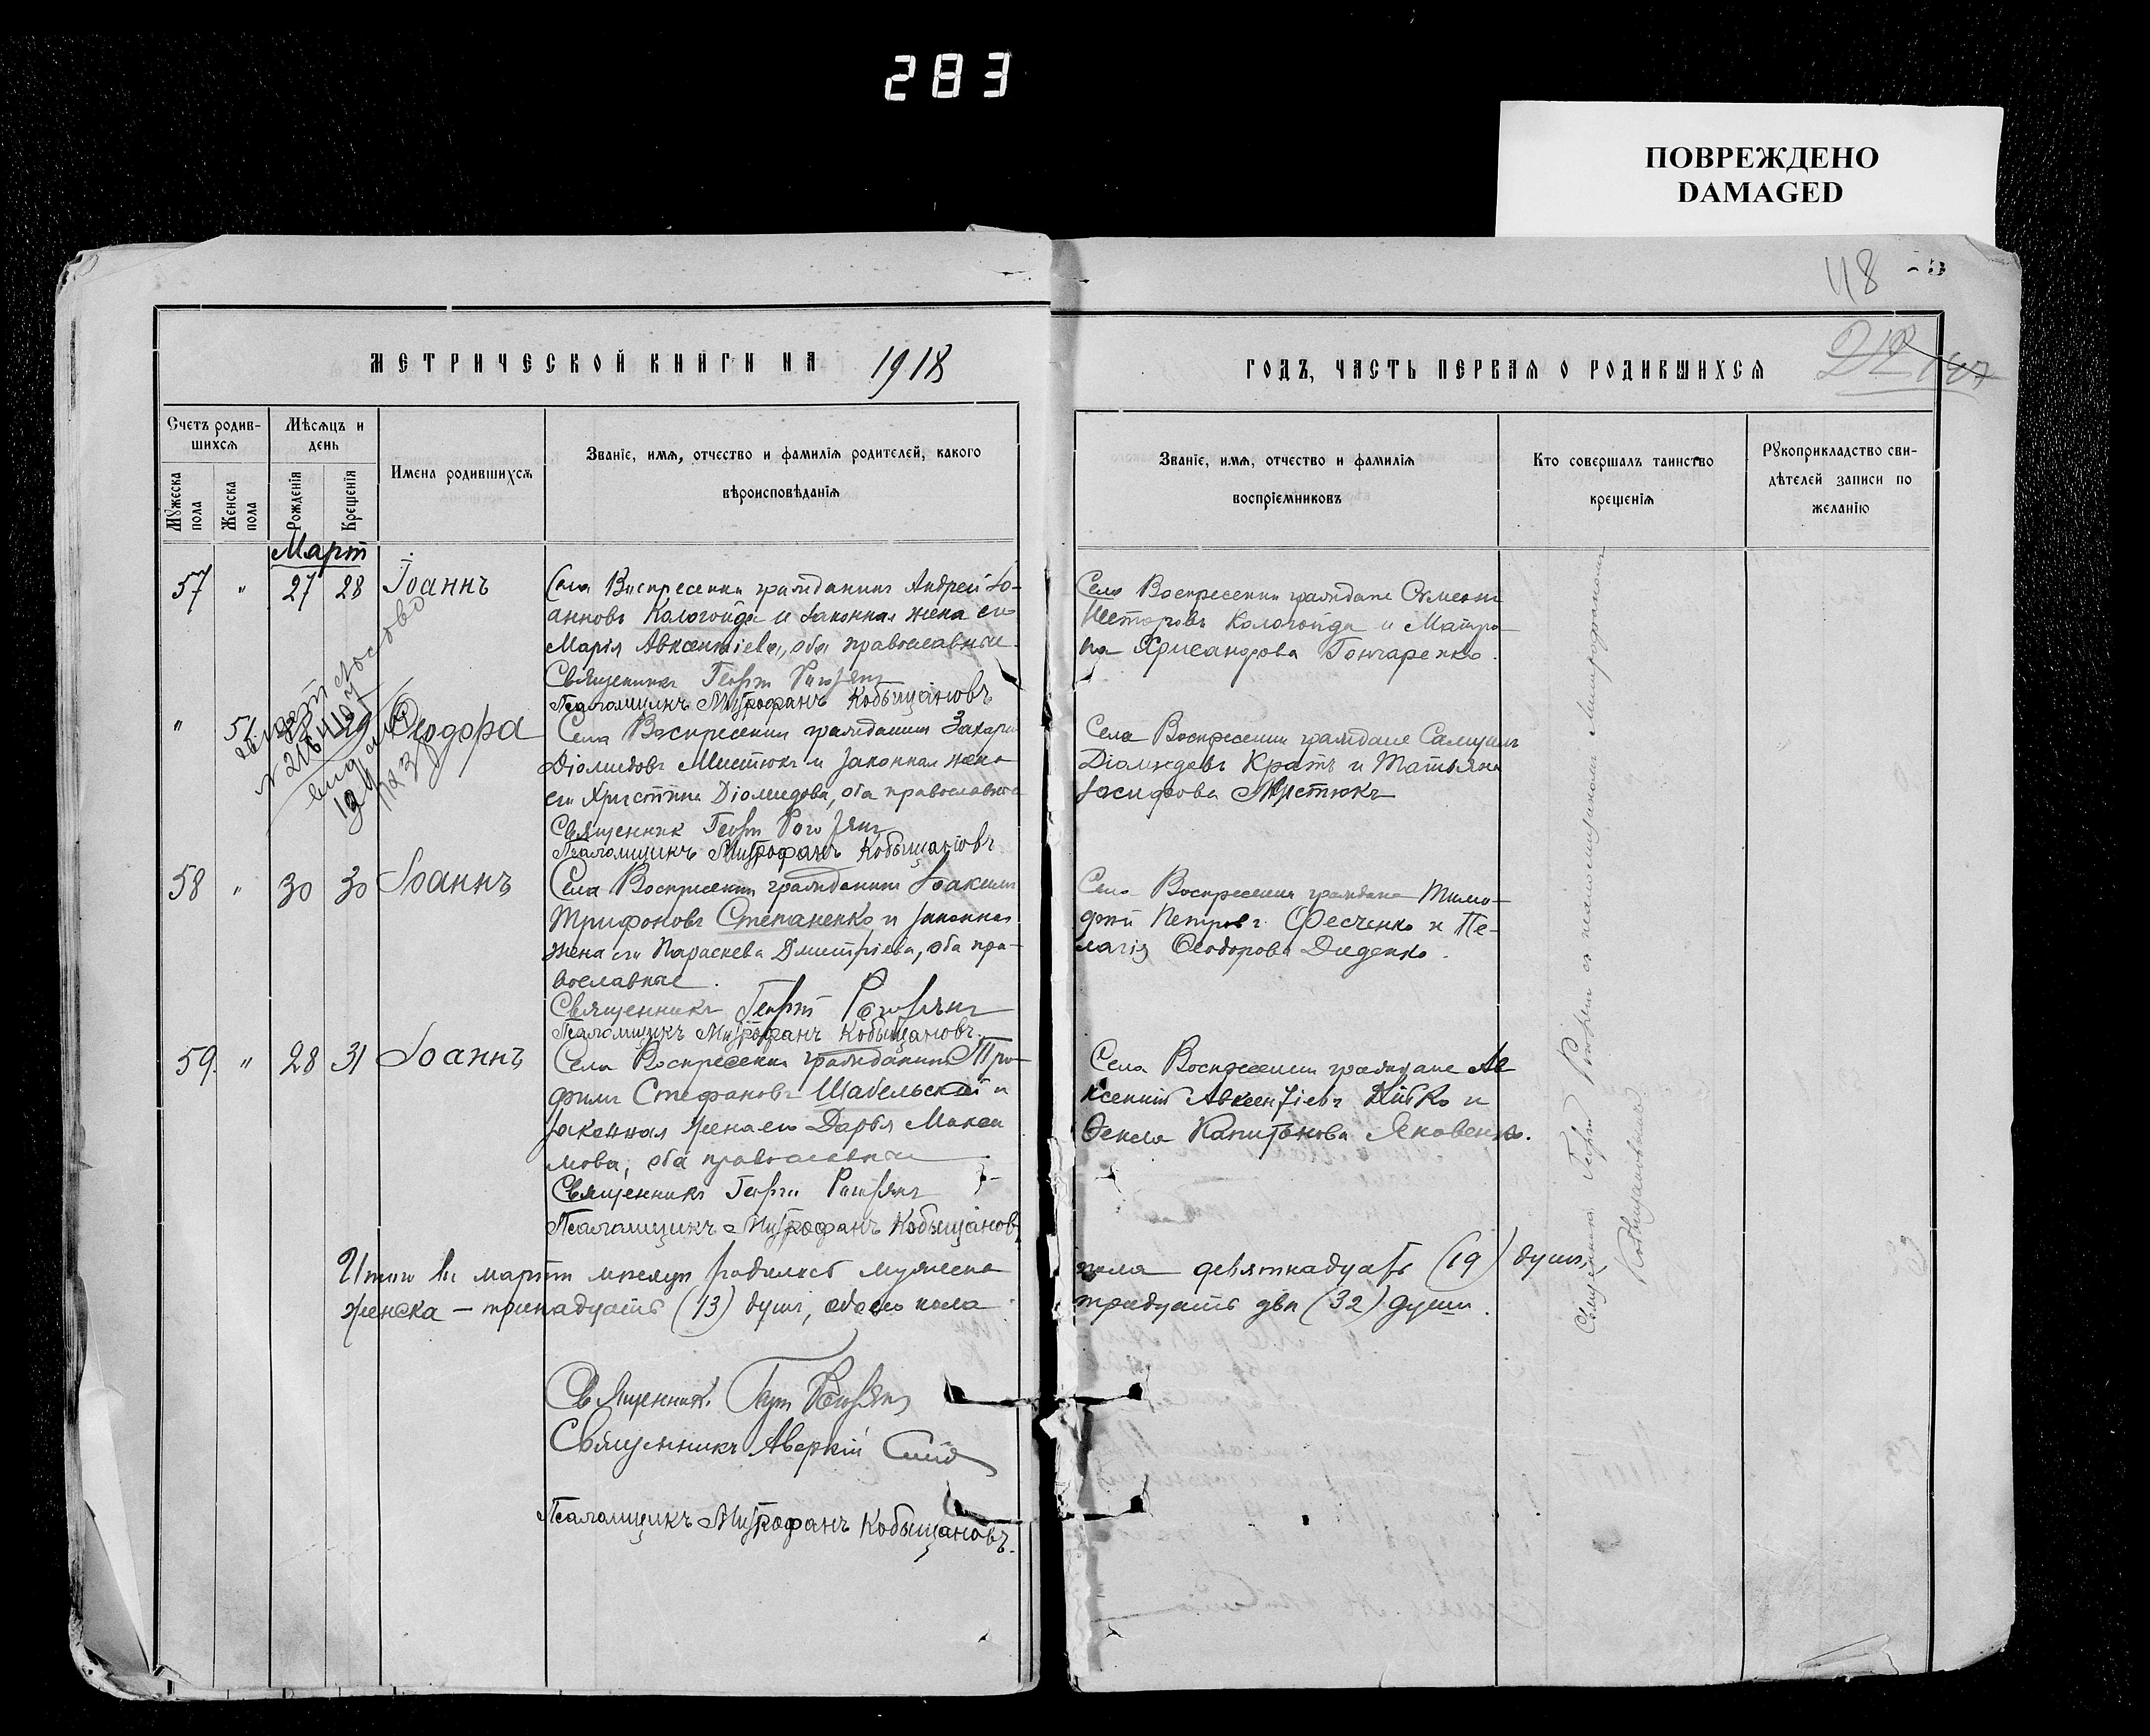 283
ПОВРЕЖДЕНО
DAMAGED
48
МЕТРИЧЕСКОЙ КНИГИ НА 1918
ГОДЪ, ЧАСТЬ ПЕРВАЯ О РОДИВШИХСЯ
Счетъ родив-
шихся
Мѣсяцъ и
день
Мужеска
пола
Женска
пола
Рожденія
Крещенія
Имена родившихся
Званіе, имя, отчество и фамилія родителей, какого
вѣроисповѣданія
Званіе, имя, отчество и фамилія
воспріемниковъ
Кто совершалъ таинство
крещенія
Рукоприкладство сви-
дѣтелей записи по
желанію
Март
57 " 27 28 Іоаннъ
Села Воскресенки гражданинъ Андрей Іо-
анновъ Кологойда и законная жена его
Марія Авксентіева, оба православные
Священникъ Георгій
Псаломщикъ Митрофанъ Кобыщановъ
Села Воскресенки граждане
Петровъ Кологойда и Матро-
на Хрисанфова Гончаренко.
" 51 29 Ѳеодора
Села Воскресенки гражданинъ Захарій
Діомидовъ и законная жена
его Христина Діомидова, оба православные
Священник Георгій
Псаломщикъ Митрофанъ Кобыщановъ
Села Воскресенки граждане Самуилъ
Діомидовъ Кратъ и Татьяна
Іосифова
58 " 30 30 Іоаннъ
Села Воскресенки гражданинъ Іоакимъ
Трифоновъ Степаненко и законная
жена его Параскева Дмитріева, оба пра-
вославные.
Священникъ Георгій
Псаломщикъ Митрофанъ Кобыщановъ.
Села Воскресенки граждане Тимо-
фей Петровъ Фесченко и Пе-
лагія Ѳеодорова Диденко.
59. " 28 31 Іоаннъ
Села Воскресенки гражданинъ Тро-
фимъ Стефановъ Шабельскій и
законная жена его Дарья Макси
мова, оба православные
Священникъ Георгій
Псаломщикъ Митрофанъ Кобыщановъ
Села Воскресенки граждане Ав
ксентій Авксентіевъ и
Ѳекла Капитонова Яковенко.
Священникъ Георгій съ псаломщикомъ Митрофаномъ
Кобыщановымъ
Итого въ мартѣ мѣсяцѣ родилось мужеска пола девятнадцать (19) душъ,
женска — тринадцать (13) душъ, обоего пола тридцать двѣ (32) души.
Священник
Священникъ Аверкій
Псаломщикъ Митрофанъ Кобыщановъ.